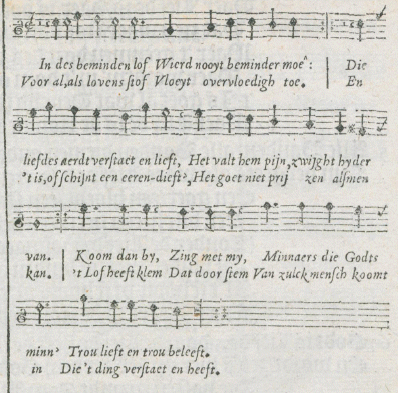 In des beminden lof Wierd nooyt beminder moê: | Die
Voor al,als lovens stof Vloeyt overvloedigh toe. | En
liefdes aerdt verstaet en lieft, Het valt hem pijn,zwijght hy der
't is,of schijnt een eeren-dieft', Het goet niet prij zen alsmen
van. | Koom dan by, Zing met my, Minnaers die Godts
kan. | 't Lof heeft klem Dat door stem Van zulck mensch koomt
minn' Trou lieft en trou beleeft.
in Die 't ding verstaet en heeft.